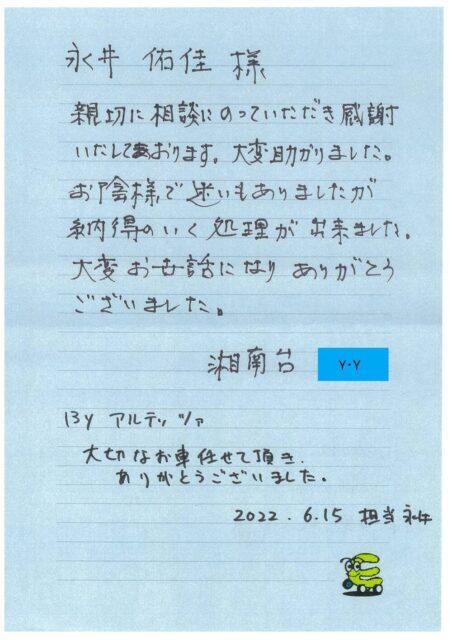 永井 佑佳 様
親切に相談にのっていただき感謝
いたしております。大変助かりました。
お陰様で迷いもありましたが
納得のいく処理が出来ました。
大変お世話になり ありがとう
ございました。
湘南台 Y・Y
13y アルテッツァ
大切なお車任せて頂き、
ありがとうございました。
2022.6.15 担当 永井